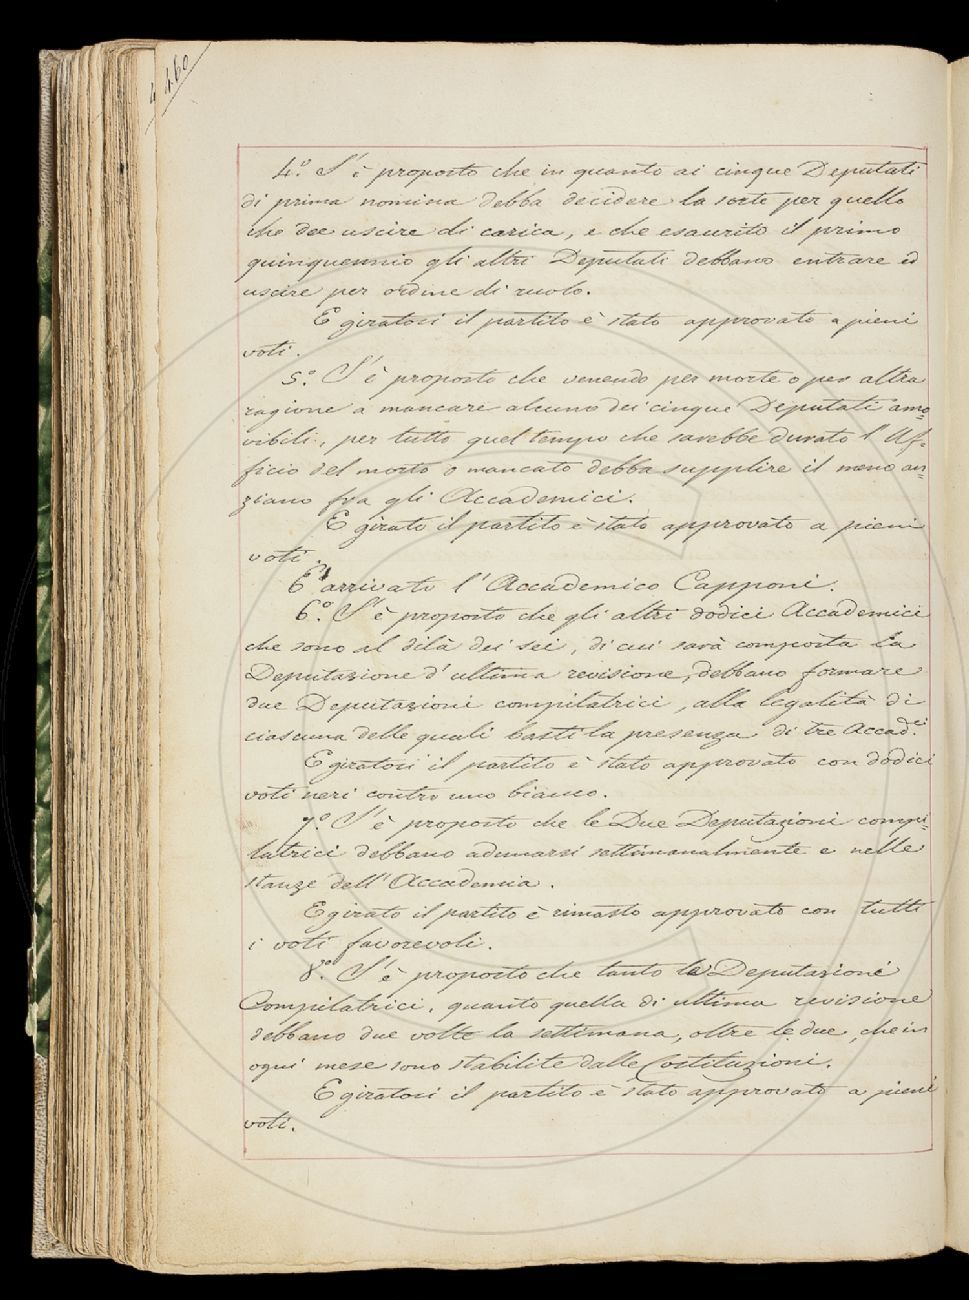 460
4.° S'è proposto che in quanto ai cinque Deputati
di prima nomina debba decidere la sorte per quello
che dee uscire di carica, e che esaurito il primo
quinquennio gli altri Deputati debbano entrare ed
uscire per ordine di ruolo.
E giratosi il partito è stato approvato a pieni
voti.
5.° S'è proposto che venendo per morte o per altra
ragione a mancare alcuno dei cinque Deputati amo=
vibili, per tutto quel tempo che sarebbe durato l'Uf=
ficio del morto o mancato debba supplire il meno an=
ziano fra gli Accademici.
E girato il partito è stato approvato a pieni
voti.
E' arrivato l'Accademico Capponi.
6.° S'è proposto che gli altri dodici Accademici
che sono al dilà dei sei, di cui sarà composta la
Deputazione d'ultima revisione, debbano formare
due Deputazioni compilatrici, alla legalità di
ciascuna delle quali basti la presenza di tre Accad.ci
E giratosi il partito è stato approvato con dodici
voti neri contro uno bianco.
7.° S'è proposto che le Due Deputazioni compi=
latrici debbano adunarsi settimanalmente e nelle
stanze dell'Accademia.
E girato il partito è rimasto approvato con tutti
i voti favorevoli.
8.° S'è proposto che tanto le Deputazioni
Compilatrici, quanto quella di ultima revisione
debbano due volte la settimana, oltre le due, che in
ogni mese sono stabilite dalle Costituzioni.
E giratosi il partito è stato approvato a pieni
voti.